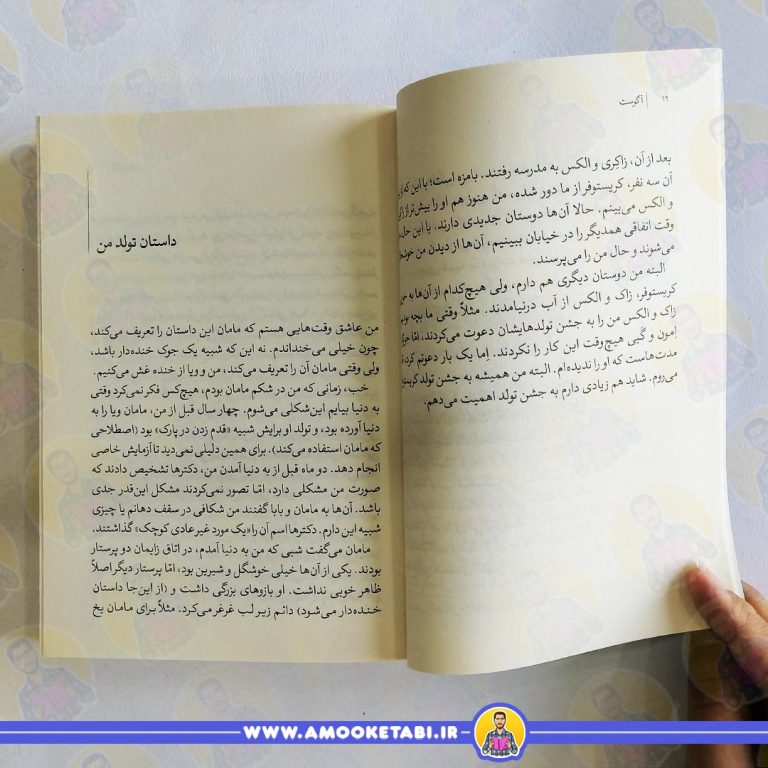 ۱۲ | آگوست
بعد از آن، زاکِری و الکس به مدرسه رفتند. بامزه است؛ با این که از
آن سه نفر، کریستوفر از ما دور شده، من هنوز هم او را بیش‌تر از
و الکس می‌بینم. حالا آن‌ها دوستان جدیدی دارند. با این حال
وقت اتفاقی همدیگر را در خیابان ببینیم، آن‌ها از دیدن من
می‌شوند و حال من را می‌پرسند.
البته من دوستان دیگری هم دارم، ولی هیچ‌کدام از آن‌ها به
کریستوفر، زاک و الکس از آب درنیامدند. مثلاً وقتی ما بچه بودیم
زاک و الکس من را به جشن تولدهایشان دعوت می‌کردند، امّا
اِمون و گَبی هیچ‌وقت این کار را نکردند. اِما یک بار دعوتم کرد
مدت‌هاست که او را ندیده‌ام. البته من همیشه به جشن تولد
می‌روم. شاید هم زیادی دارم به جشن تولد اهمیت می‌دهم.
داستان تولد من
من عاشق وقت‌هایی هستم که مامان این داستان را تعریف می‌کند،
چون خیلی می‌خنداندم. نه این که شبیه یک جوک خنده‌دار باشد،
ولی وقتی مامان آن را تعریف می‌کند، من و ویا از خنده غش می‌کنیم.
خب، زمانی که من در شکم مامان بودم، هیچ‌کس فکر نمی‌کرد وقتی
به دنیا بیایم این‌شکلی می‌شوم. چهار سال قبل از من، مامان ویا را به
دنیا آورده بود، و تولد او برایش شبیه «قدم زدن در پارک» بود (اصطلاحی
که مامان استفاده می‌کند)، برای همین دلیلی نمی‌دید تا آزمایش خاصی
انجام دهد. دو ماه قبل از به دنیا آمدن من، دکترها تشخیص دادند که
صورت من مشکلی دارد، امّا تصور نمی‌کردند مشکل این‌قدر جدی
باشد. آن‌ها به مامان و بابا گفتند من شکافی در سقف دهانم یا چیزی
شبیه این دارم. دکترها اسم آن را «یک مورد غیرعادی کوچک» گذاشتند.
مامان می‌گفت شبی که من به دنیا آمدم، در اتاق زایمان دو پرستار
بودند. یکی از آن‌ها خیلی خوشگل و شیرین بود، امّا پرستار دیگر اصلاً
ظاهر خوبی نداشت. او بازوهای بزرگی داشت و (از این‌جا داستان
خنده‌دار می‌شود) دائم زیر لب غرغر می‌کرد. مثلاً برای مامان یخ
WWW.AMOOKETABI.IR